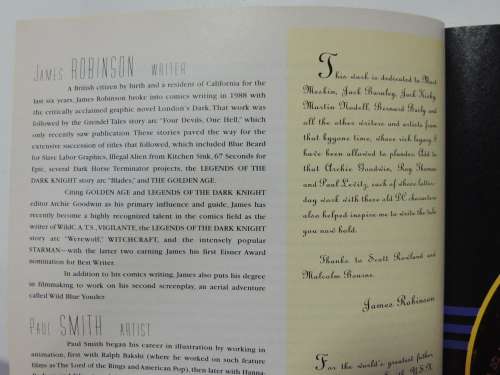 James ROBINSON WRITER
A British citizen by birth and a resident of California for the
last six years, James Robinson broke into comics writing in 1988 with
the critically acclaimed graphic novel London's Dark. That work was
followed by the Grendel Tales story arc "Four Devils, One Hell," which
only recently saw publication. These stories paved the way for the
extensive succession of titles that followed, which included Blue Beard
for Slave Labor Graphics, Illegal Alien from Kitchen Sink, 67 Seconds for
Epic, several Dark Horse Terminator projects, the LEGENDS OF THE
DARK KNIGHT story arc "Blades," and THE GOLDEN AGE.
Citing GOLDEN AGE and LEGENDS OF THE DARK KNIGHT
editor Archie Goodwin as his primary influence and guide, James has
recently become a highly recognized talent in the comics field as the
writer of WildC.A.T.S., VIGILANTE, the LEGENDS OF THE DARK KNIGHT
story arc "Werewolf," WITCHCRAFT, and the intensely popular
STARMAN—with the latter two earning James his first Eisner Award
nomination for Best Writer.
In addition to his comics writing, James also puts his degree
in filmmaking to work on his second screenplay, an aerial adventure
called Wild Blue Yonder.
Paul SMITH ARTIST
Paul Smith began his career in illustration by working in
animation, first with Ralph Bakshi (where he worked on such feature
films as The Lord of the Rings and American Pop), then later with Hanna-
This work is dedicated to Mort
Meskin, Jack Burnley, Jack Kirby,
Martin Nodell, Bernard Baily and
all the other writers and artists from
that bygone time, whose rich legacy I
have been allowed to plunder. Add to
that Archie Goodwin, Roy Thomas
and Paul Levitz, each of whose latter-
day work with these old DC characters
also helped inspire me to write the tale
you now hold.
Thanks to Scott Rowland and
Malcolm Bourne.
James Robinson
For the world's greatest father